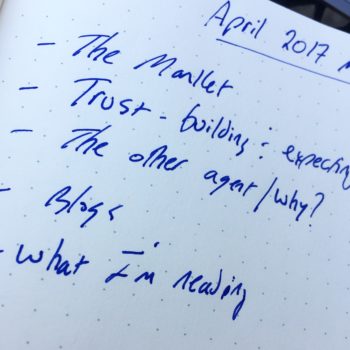 April 2017
- The Market
- Trust-building: expecting
- The other agent/why?
- Blogs
- What I'm reading